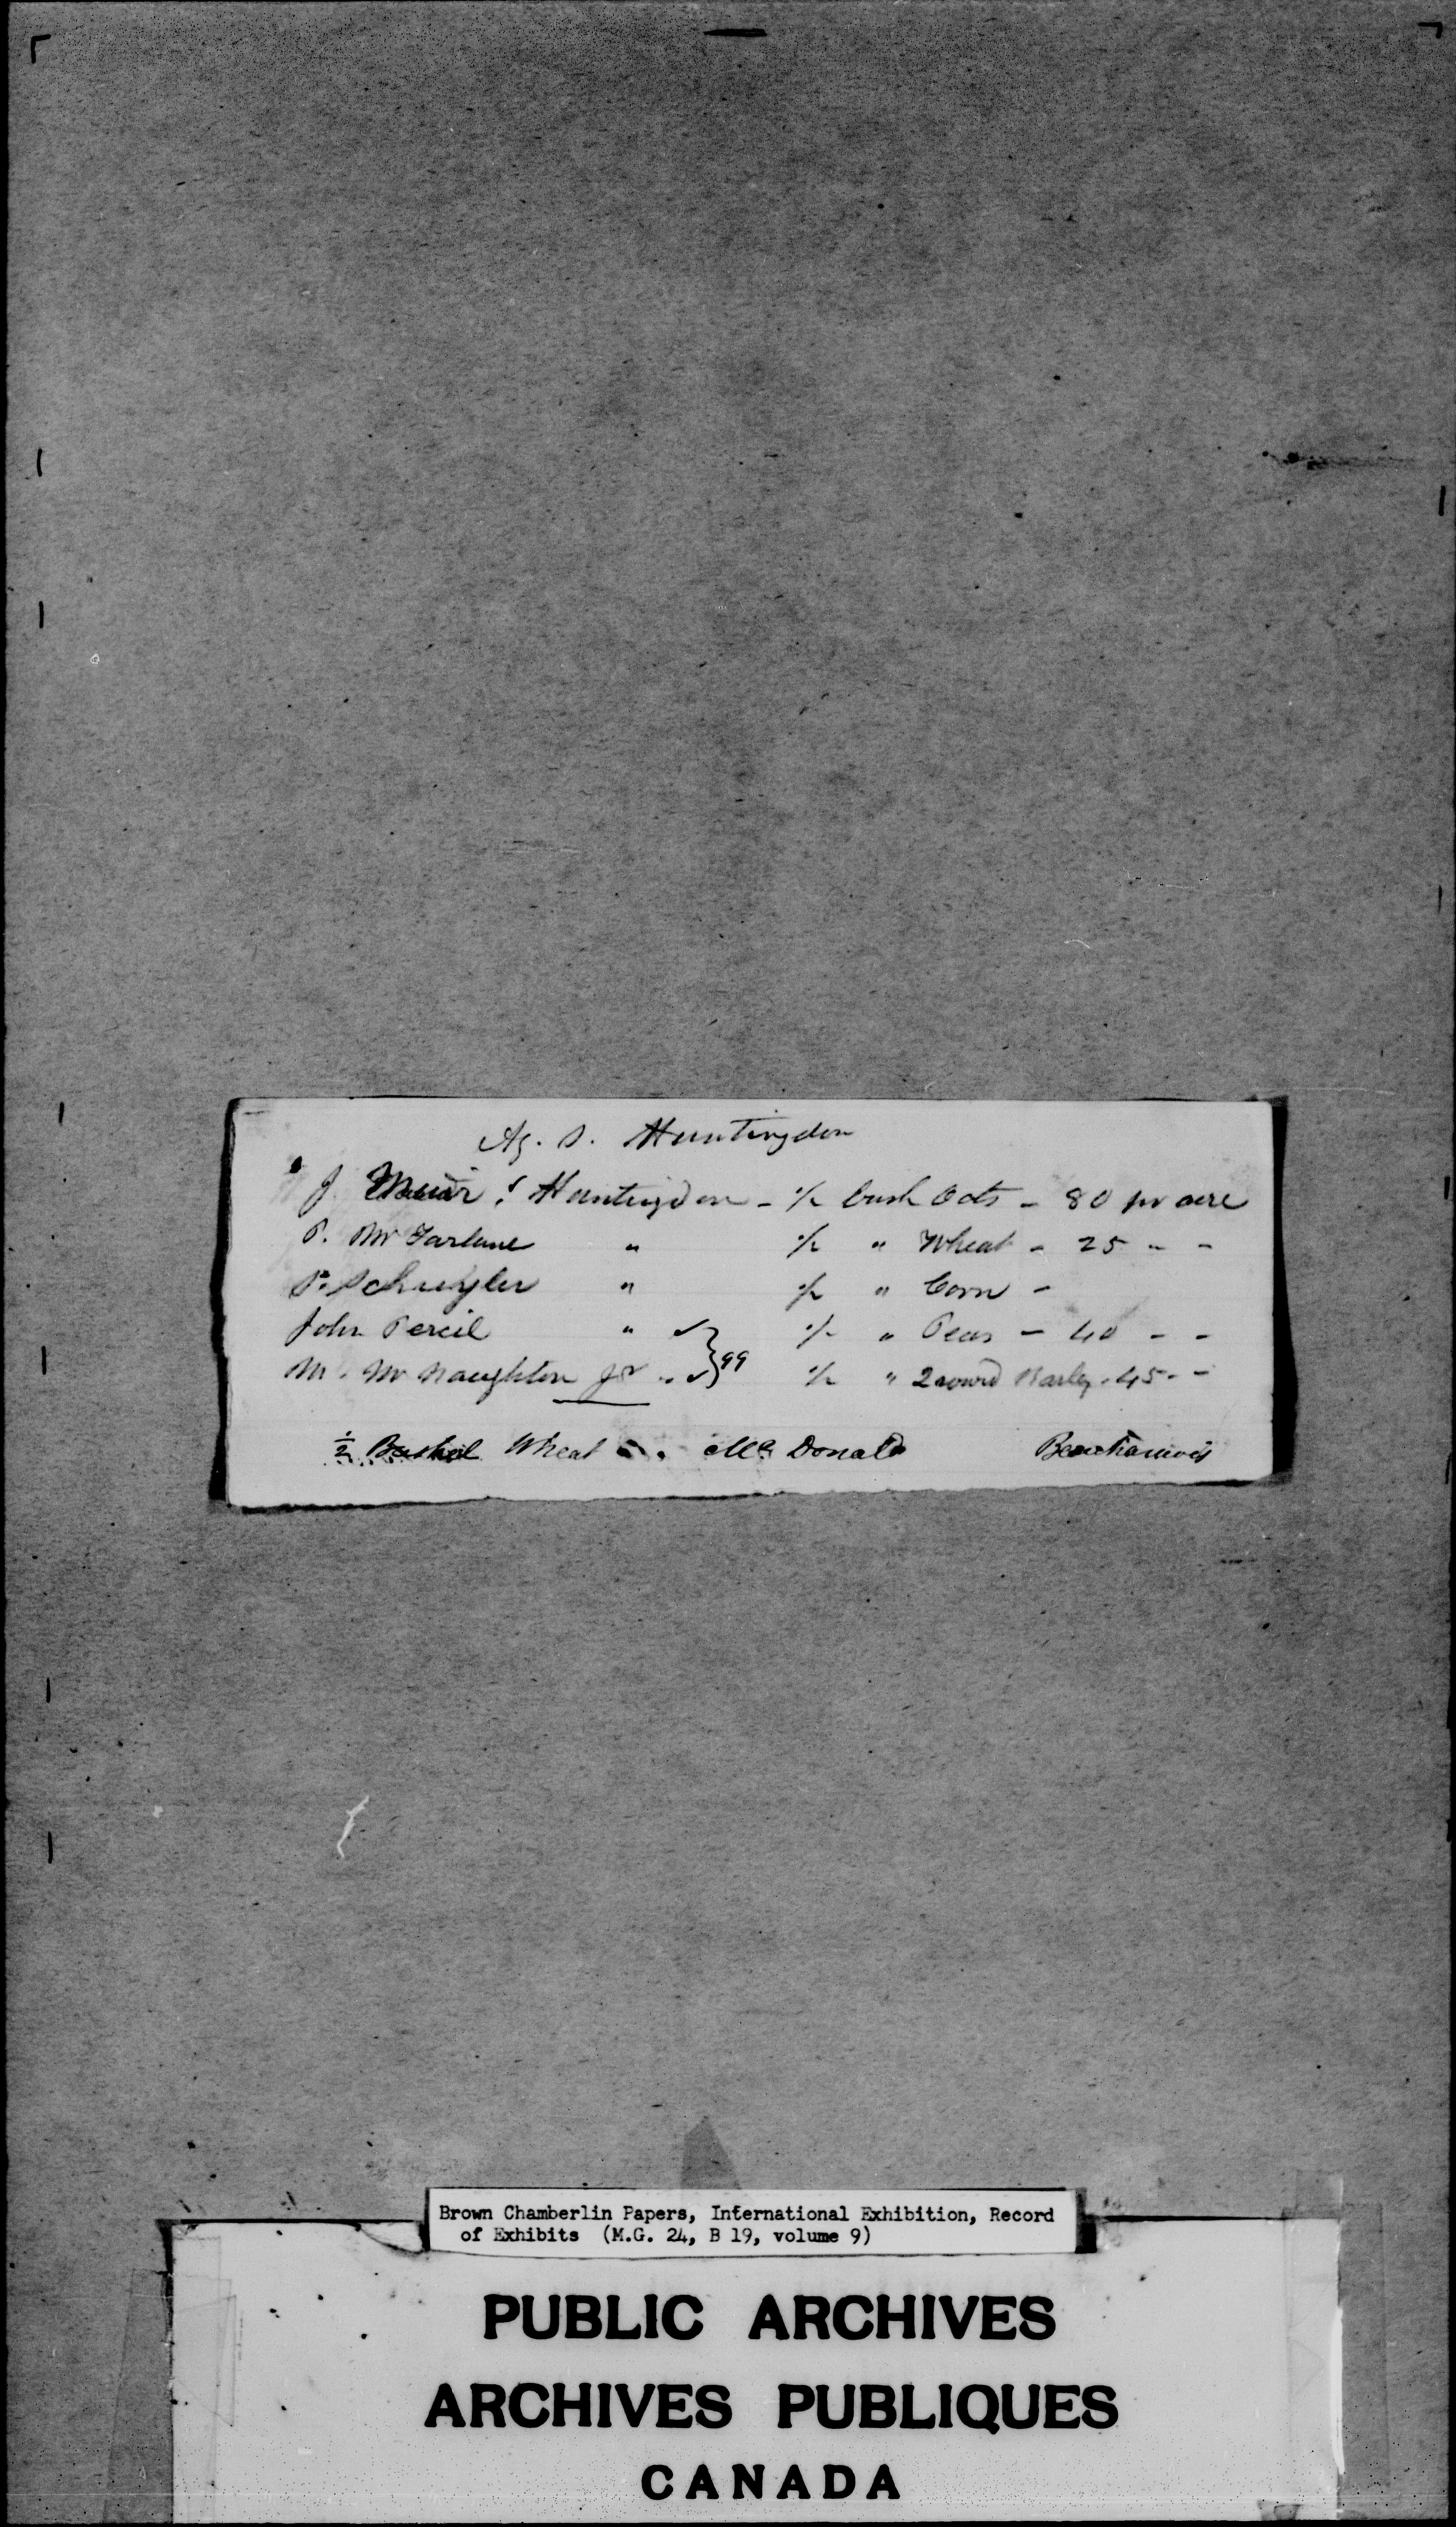 Ag. S. Huntingdon
J Muir Huntingdon - ½ bush Oats - 80 pr acre
P. McFarlane " ½ " Wheat - 25 " -
P. Schuyler " ½ " Corn -
John Percil " ✓ ½ " Peas - 40 - -
M. McNaughton Jr " ✓ } 99 ½ " 2 rowed Barley - 45 - -
½ Bushel Wheat Mc Donald Beauharnois
Brown Chamberlin Papers, International Exhibition, Record
of Exhibits (M.G. 24, B 19, volume 9)
PUBLIC ARCHIVES
ARCHIVES PUBLIQUES
CANADA